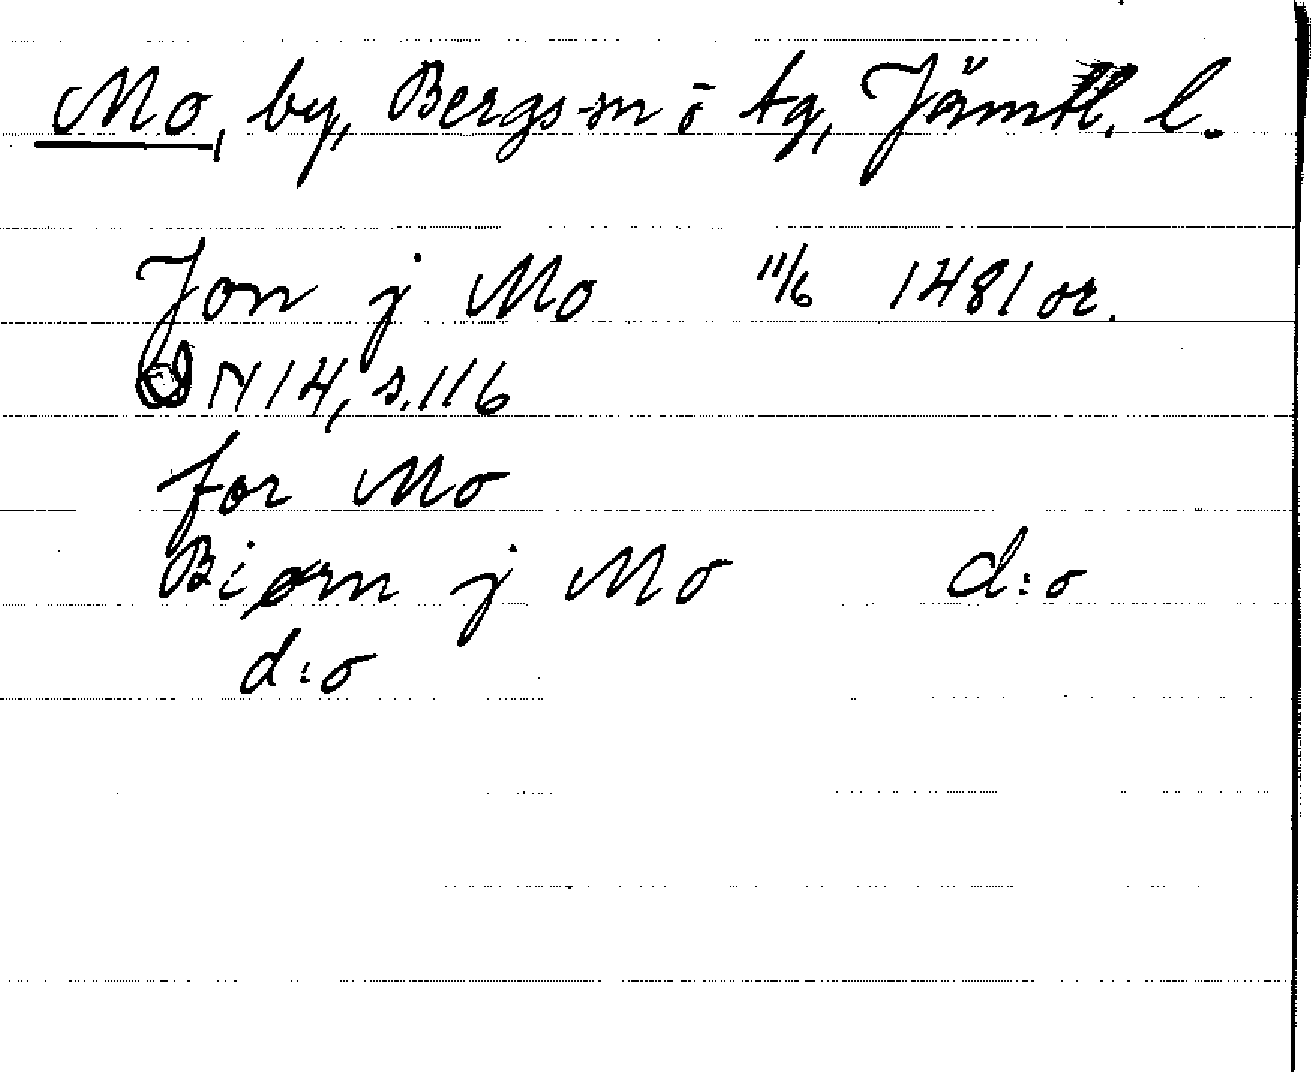 Mo, by, Bergs sn ö tg, Jämtl. l.
Jon j Mo 11/6 1481 or.
DN 14, s. 116
for Mo
Biørn j Mo d:o
d:o